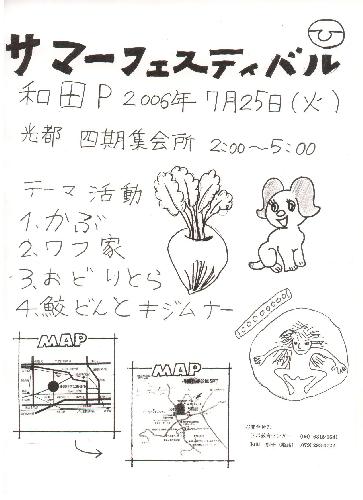 サマーフェスティバル
和田P 2006年 7月25日(火)
光都 四期集会所 2:00〜5:00
テーマ活動
1.かぶ
2.ワフ家
3.おどりとら
4.鮫どんとキジムナー
MAP
MAP